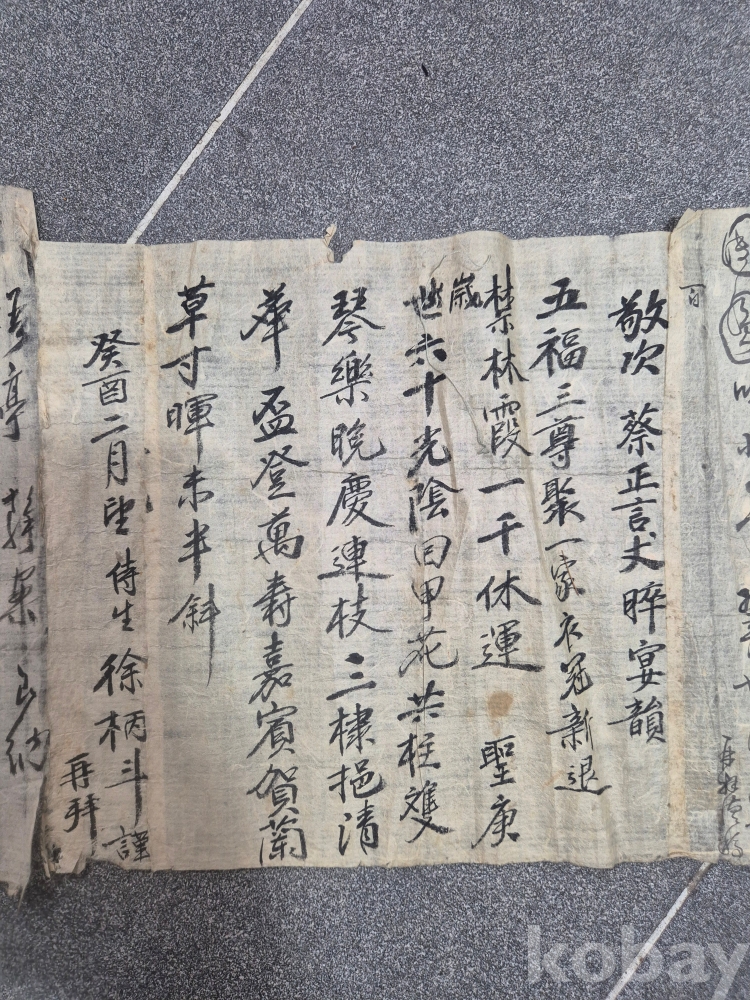 敬次 蔡正言丈晬宴韻
五福三尊聚一家衣冠新退
禁林霞一千休運 聖庚
歲六十光陰回甲花共柱雙
琴樂晩慶連枝三棣挹清
華盃登萬壽嘉賓賀蘭
草寸暉未半斜
癸酉二月望 侍生 徐柄斗 謹
再拜
亭 静案
kobay